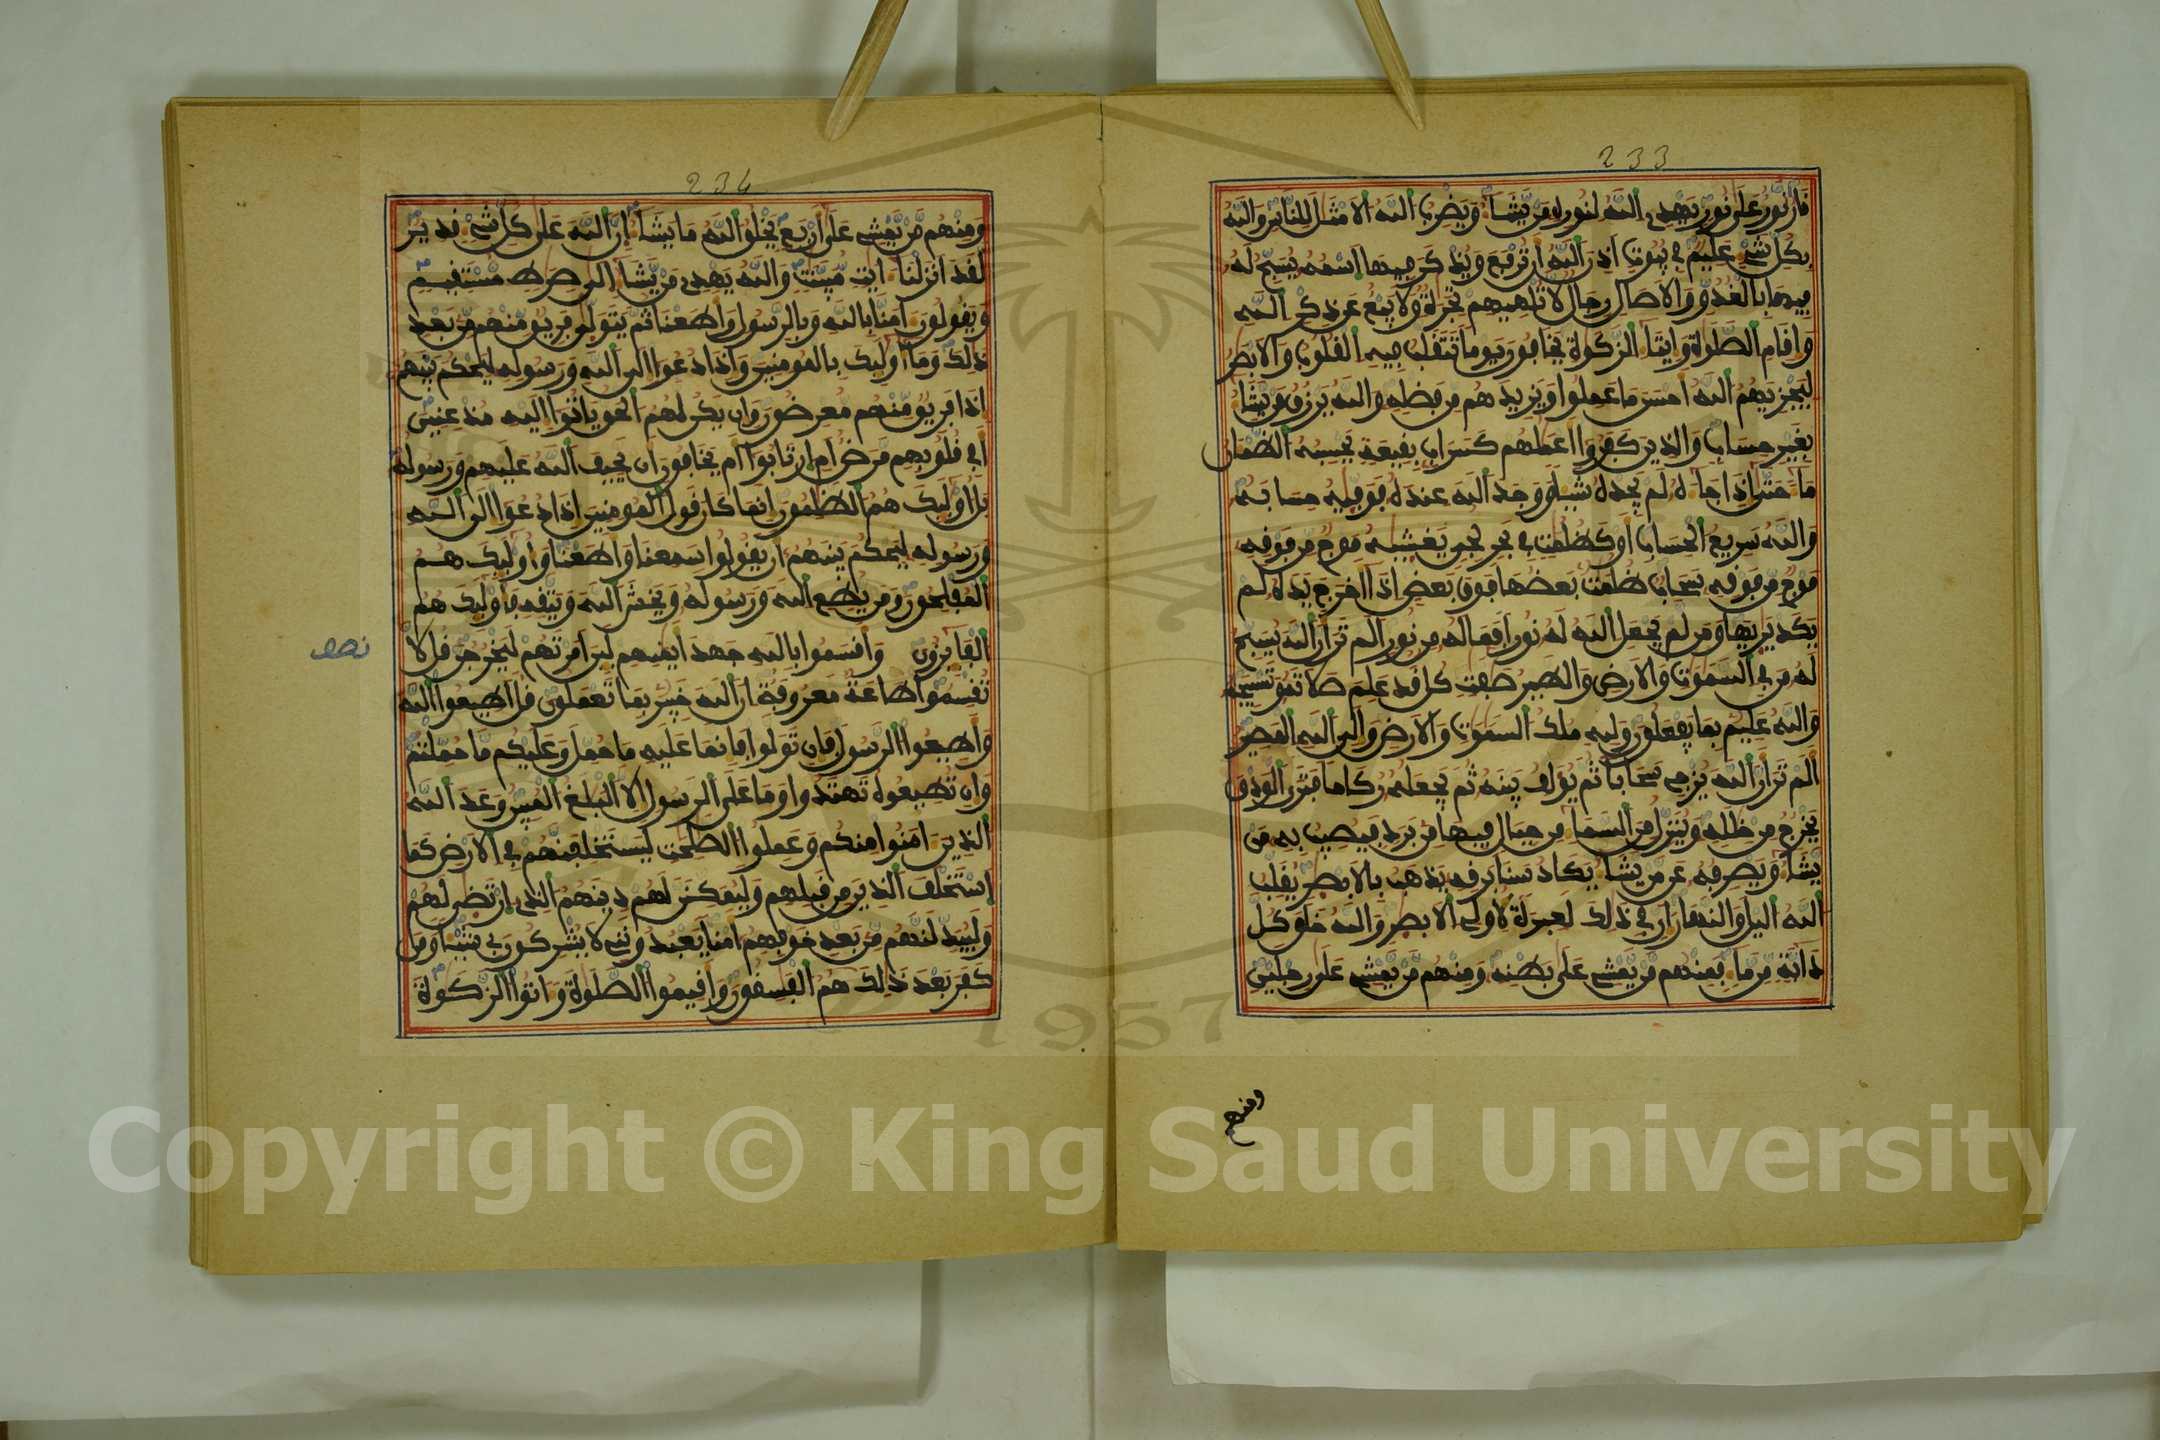 233
نار نور على نور يهدى الله لنوره من يشا ويضرب الله الامثل للناس والله
بكل شىء عليم في بيوت اذن الله ان ترفع ويذكر فيها اسمه يسبح له
فيها بالغدو والاصال رجال لا تلهيهم تجرة ولا بيع عن ذكر الله
واقام الصلوة وايتا الزكوة يخافون يوما تتقلب فيه القلوب والابصر
ليجزيهم الله احسن ما عملوا ويزيدهم من فضله والله يرزق من يشا
بغير حساب والذين كفروا اعملهم كسراب بقيعة يحسبه الظمان
ما حتى اذا جاه لم يجده شيا ووجد الله عنده فوفيه حسابه
والله سريع الحساب او كظلمت في بحر لجي يغشيه موج من فوقه
موج من فوقه سحاب ظلمت بعضها فوق بعض اذا اخرج يده لم
يكد يريها ومن لم يجعل الله له نورا فما له من نور الم تر ان الله يسبح
له من في السموت والارض والطير صفت كل قد علم صلاته وتسبيحه
والله عليم بما يفعلون ولله ملك السموت والارض والى الله المصير
الم تر ان الله يزجى سحابا ثم يولف بينه ثم يجعله ركاما فترى الودق
يخرج من خلله وينزل من السما من جبال فيها من برد فيصيب به من
يشا ويصرفه عن من يشا يكاد سنا برقه يذهب بالابصر يقلب
الله اليل والنهار ان في ذلك لعبرة لاولى الابصر والله خلق كل
دابة من ما فمنهم من يمشى على بطنه ومنهم من يمشى على رجلين
ومنهم
234
ومنهم من يمشى على اربع يخلق الله ما يشا ان الله على كل شىء قدير
لقد انزلنا ايت مبينت والله يهدى من يشا الى صرط مستقيم
ويقولون امنا بالله وبالرسول واطعنا ثم يتولى فريق منهم من بعد
ذلك وما اوليك بالمومنين واذا دعوا الى الله ورسوله ليحكم بينهم
اذا فريق منهم معرضون وان يكن لهم الحق ياتوا اليه مذعنين
افي قلوبهم مرض ام ارتابوا ام يخافون ان يحيف الله عليهم ورسوله
بل اوليك هم الظلمون انما كان قول المومنين اذا دعوا الى الله
ورسوله ليحكم بينهم ان يقولوا سمعنا واطعنا واوليك هم
المفلحون ومن يطع الله ورسوله ويخش الله ويتقه فاوليك هم
الفايزون واقسموا بالله جهد ايمنهم لين امرتهم ليخرجن قل لا
نصف
تقسموا طاعة معروفة ان الله خبير بما تعملون قل اطيعوا الله
واطيعوا الرسول فان تولوا فانما عليه ما حمل وعليكم ما حملتم
وان تطيعوه تهتدوا وما على الرسول الا البلغ المبين وعد الله
الذين امنوا منكم وعملوا الصلحت ليستخلفنهم في الارض كما
استخلف الذين من قبلهم وليمكنن لهم دينهم الذى ارتضى لهم
وليبدلنهم من بعد خوفهم امنا يعبدونني لا يشركون بي شيا ومن
كفر بعد ذلك فاوليك هم الفسقون واقيموا الصلوة واتوا الزكوة
1957
Copyright © King Saud University